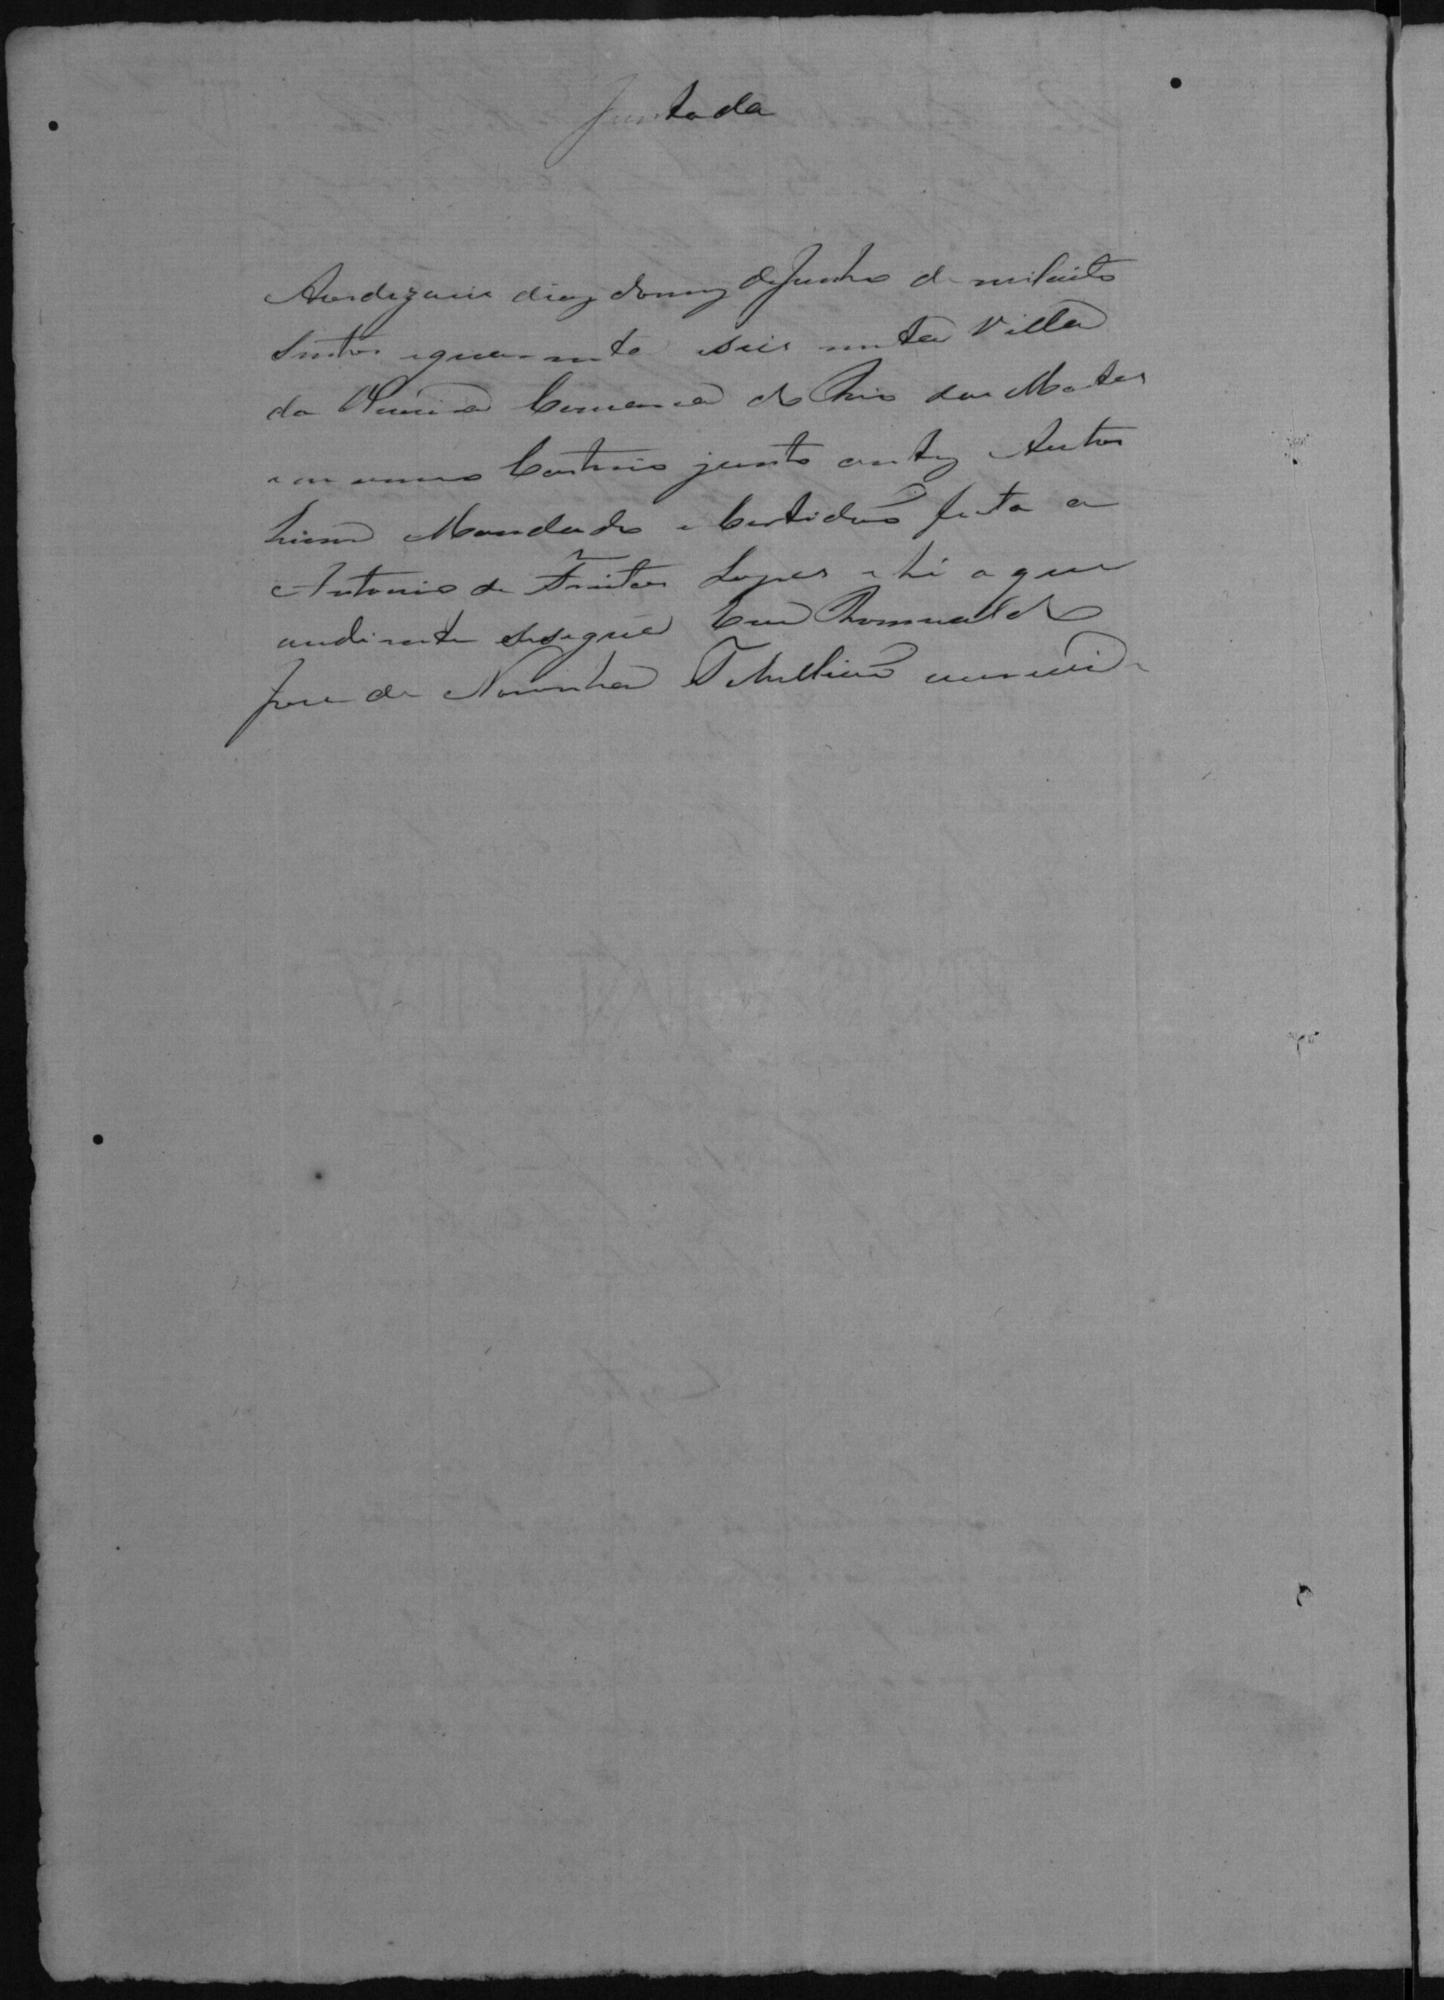 Juntada
Aos dezaseis dias do mes de Junho de mil oito
sentos e quarenta e seis nesta Villa
da Comarca do Rio das Mortes
e em meo Cartorio junto a estes Autos
hum Mandado e Certidaõ feita a
Antonio de Freitas Lopes e hé o que
ao diante se segue Eu Romualdo
Jose de Noronha Tabelliaõ que escrevi